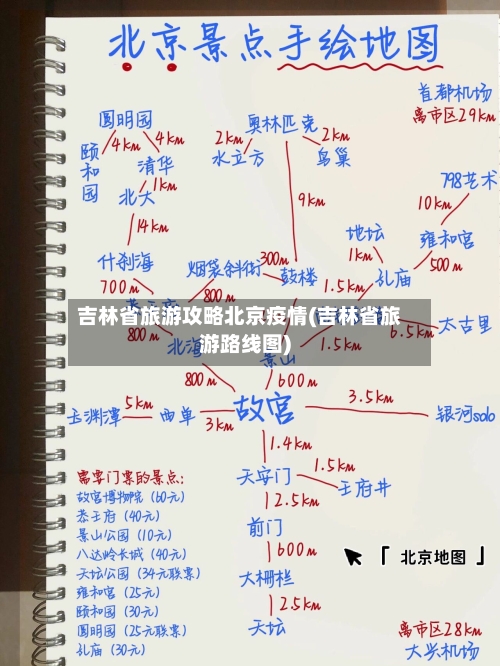 北京景点手绘地图
首都机场
离市区29km
圆明园
4km
4km
颐和园
清华
1km
北大
14km
奥林匹克
2km
2km
水立方
鸟巢
9km
798艺术
10km
地坛
雍和宫
1km
500m
孔庙
什刹海
烟袋斜街
300m
鼓楼
700m
800m
1.5km
吉林省旅游攻略北京疫情(吉林省旅
游路线图)
800m
1.5km
6.5km
太古里
北海
景山
800m
600m
玉渊潭
5km
西单
3km
故宫
3.5km
银河solo
1.4km
天安门
1.5km
王府井
2.5km
前门
600m
大栅栏
2.5km
天坛
需要门票的景点:
故宫博物院(60元)
恭王府(40元)
景山公园(10元)
八达岭长城(40元)
天坛公园(34元联票)
雍和宫(25元)
颐和园(30元)
圆明园(25元联票)
孔庙(30元)
「北京地图」
离市区28km
大兴机场